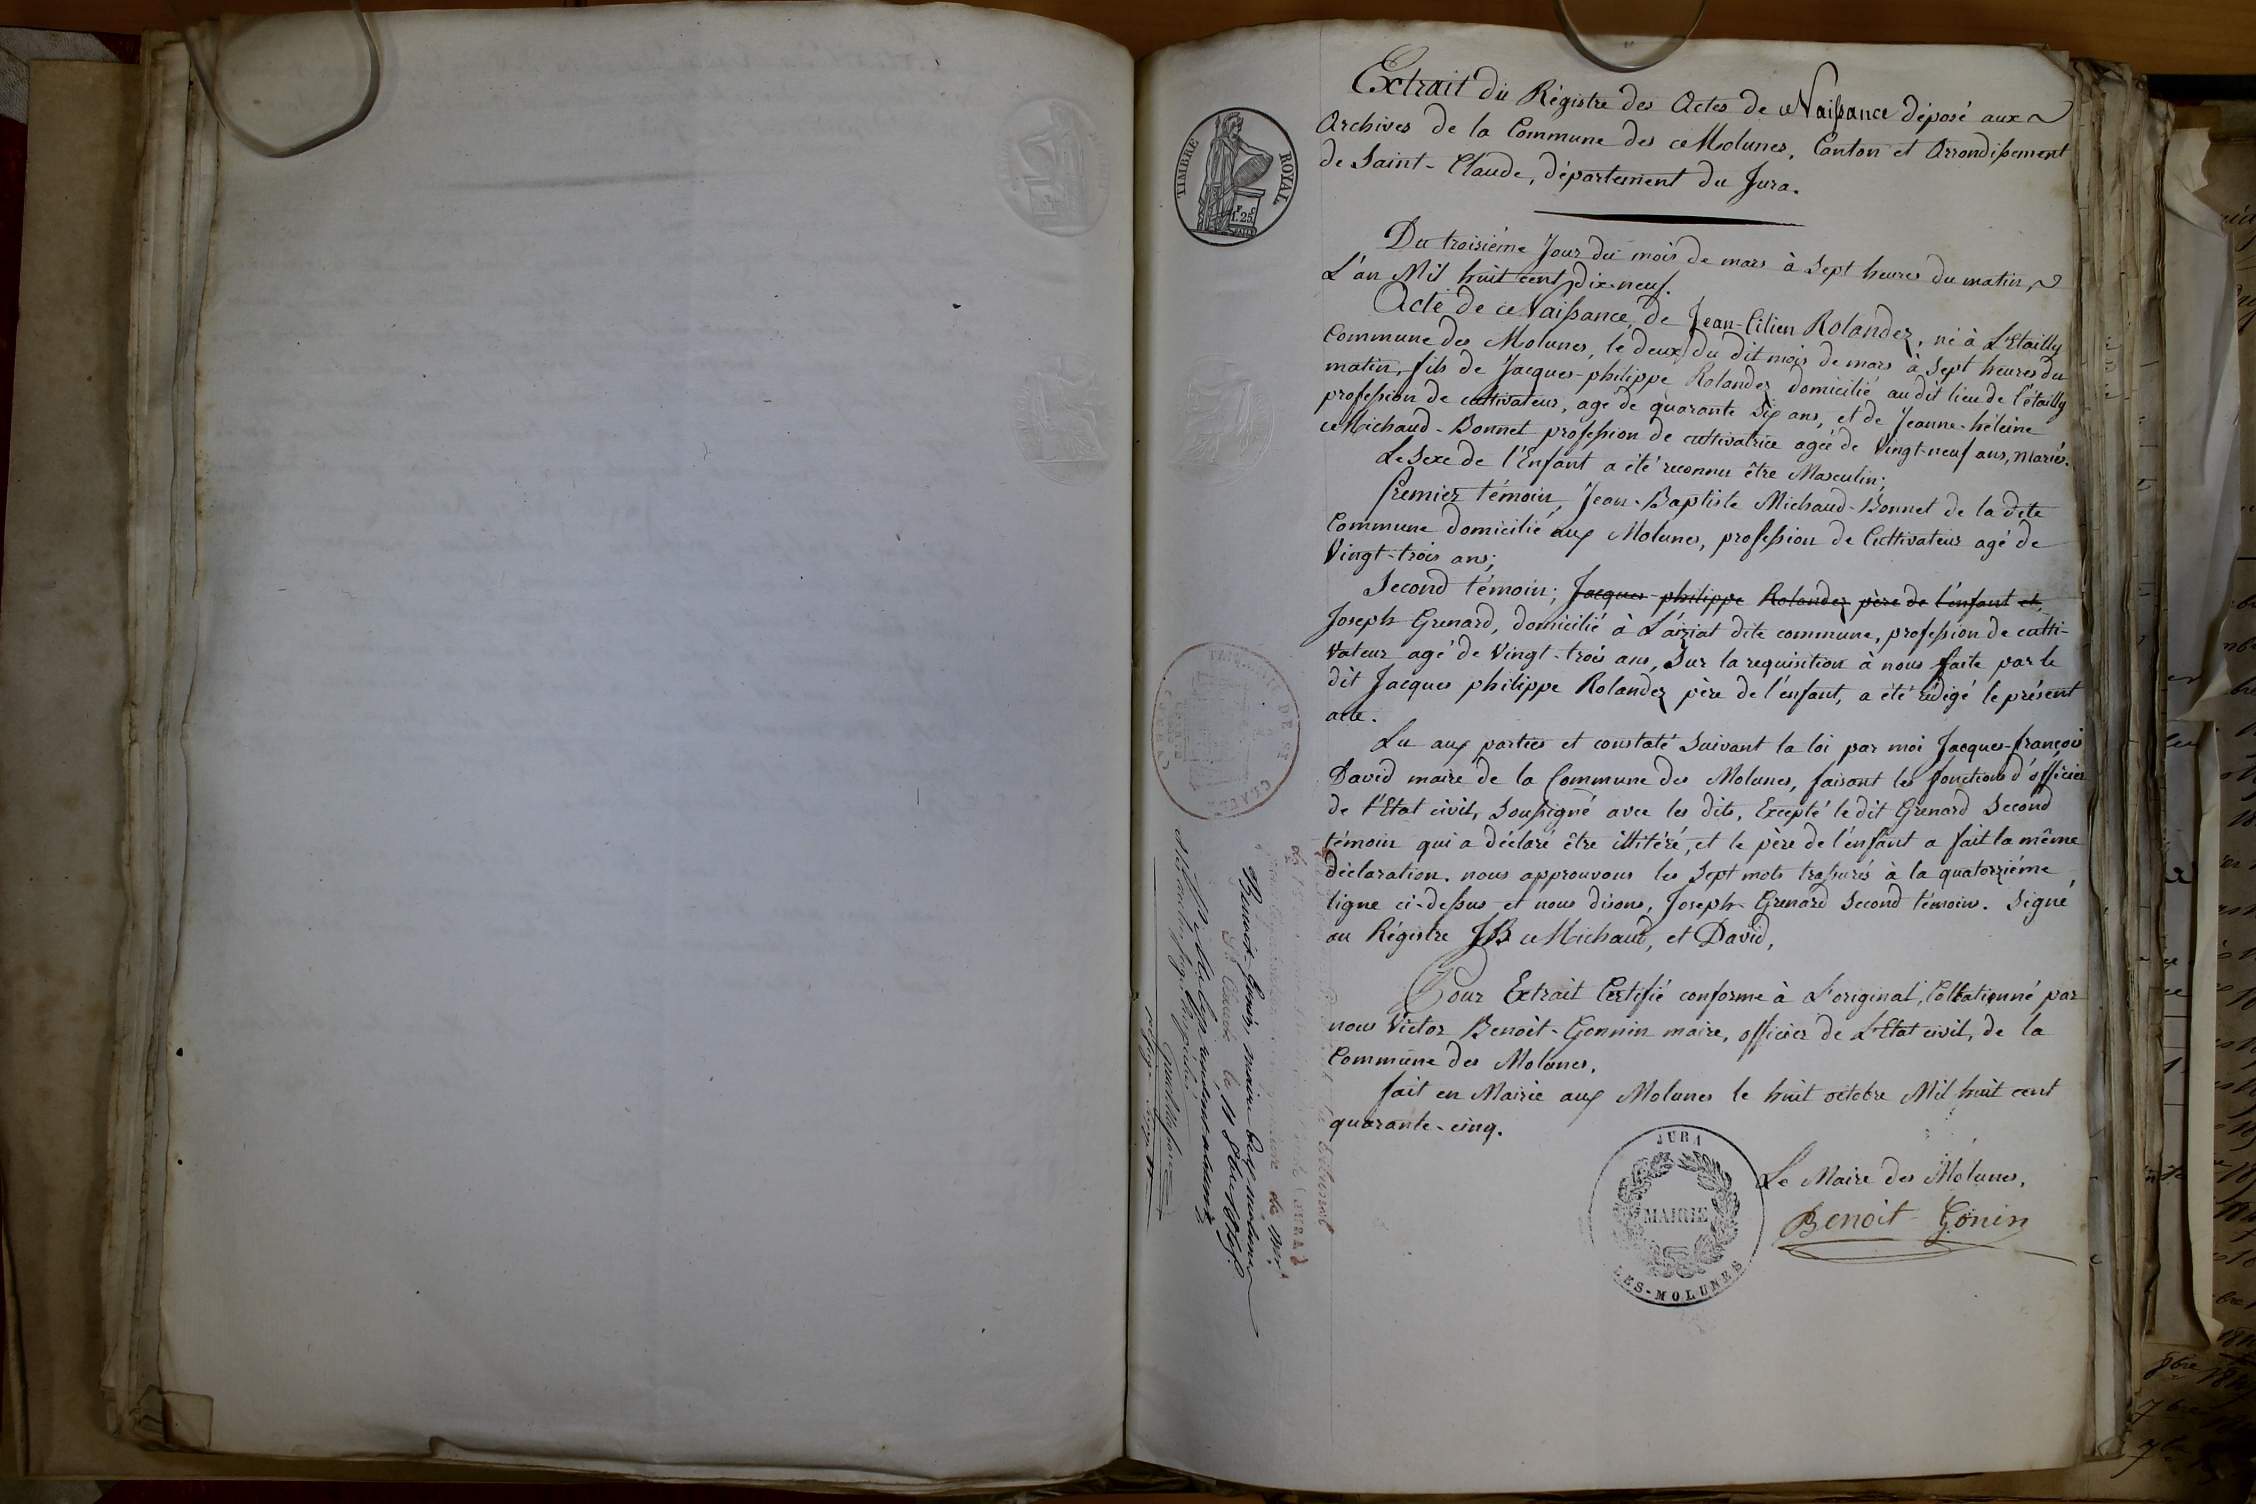 TIMBRE ROYAL
1.25
Extrait du Régistre des Actes de Naissance déposé aux
Archives de la Commune des Molunes, Canton et Arrondissement
de Saint-Claude, département du Jura.
Du troisième Jour du mois de mars à Sept heures du matin,
L'an Mil huit cent dix-neuf.
Acte de Naissance, de Jean-Cilien Rolandez, né à L'Etailly
Commune des Molunes, le deux du dit mois de mars à Sept heures du
matin, fils de Jacques-philippe Rolandez domicilié au dit lieu de l'étailly
profession de cultivateur, agé de quarante Six ans, et de Jeanne-héleine
Michaud-Bonnet profession de cultivatrice agée de Vingt-neuf ans, mariés.
Le Sexe de l'Enfant a été reconnu être Masculin;
Premier témoin, Jean-Baptiste Michaud-Bonnet de la dite
Commune domicilié aux Molunes, profession de Cultivateur agé de
Vingt-trois ans;
Second témoin; Jacques-philippe Rolandez père de l'enfant et,
Joseph Grenard, domicilié à L'aiziat dite commune, profession de culti-
vateur agé de Vingt-trois ans, Sur la requisition à nous faite par le
dit Jacques philippe Rolandez père de l'enfant, a été rédigé le présent
acte.
Lu aux parties et constaté Suivant la loi par moi Jacques-françois
David maire de la Commune des Molunes, faisant les fonctions d'officier
de l'Etat civil, Soussigné avec les dits, Excepté le dit Grenard Second
témoin qui a déclaré être illitéré, et le père de l'enfant a fait la même
déclaration. nous approuvons les Sept mots trassurés à la quatorzième
ligne ci-dessus et nous disons, Joseph Grenard Second témoin. Signé
au Régistre JB Michaud, et David,
Pour Extrait Certifié conforme à L'original, Collationné par
nous Victor Benoit-Gonnin maire, officier de L'Etat civil, de la
Commune des Molunes.
fait en Mairie aux Molunes le huit octobre Mil huit cent
quarante-cinq.
Le Maire des Molunes,
Benoit-Gonin
JURA
MAIRIE
LES-MOLUNES
DE ST CLAUDE
Benoit-Gonin, maire des molunes